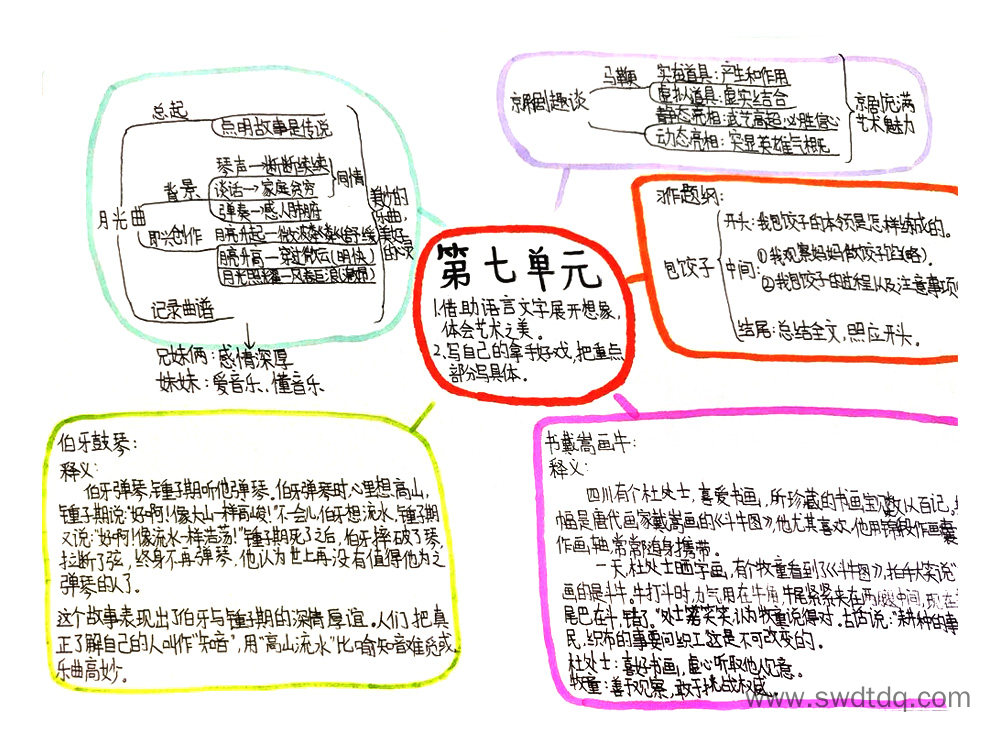 第七单元
1.借助语言文字展开想象,
体会艺术之美。
2.写自己的拿手好戏,把重点
部分写具体。
月光曲
总起
点明故事是传说
背景
琴声—断断续续
谈话→家庭贫穷
弹奏→感人肺腑
同情
即兴创作
月亮升起—微波粼粼(舒缓)
月亮升高—穿过微云(明快)
月光照耀—风卷巨浪(激昂)
记录曲谱
美妙的
乐曲,
兄妹俩:感情深厚
妹妹:爱音乐、懂音乐
京剧趣谈
马鞭
实有道具:产生和作用
虚拟道具:虚实结合
静态亮相:武艺高超,必胜信心
动态亮相:突显英雄气概
京剧充满
艺术魅力
习作题纲:
包饺子
开头:我包饺子的本领是怎样练成的。
中间:
①我观察妈妈做饺子馅(略)。
②我包饺子的过程以及注意事项
结尾:总结全文,照应开头。
伯牙鼓琴:
释义:
伯牙弹琴,锺子期听他弹琴。伯牙弹琴时心里想高山,
锺子期说:“好啊!像大山一样高峻!”不一会儿伯牙想流水,锺子期
又说:“好啊!像流水一样浩荡!”锺子期死了之后,伯牙摔破了琴,
拉断了弦,终身不再弹琴,他认为世上再没有值得他为之
弹琴的人了。
这个故事表现出了伯牙与锺子期的深情厚谊。人们把真
正了解自己的人叫作“知音”,用“高山流水”比喻知音难觅或
乐曲高妙。
书戴嵩画牛:
释义:
四川有个杜处士,喜爱书画,所珍藏的书画宝贝数以百记,
幅是唐代画家戴嵩画的《斗牛图》,他尤其喜欢,他用锦缎作画囊
作画轴,常常随身携带。
一天,杜处士晒字画,有个牧童看到了《斗牛图》,拍手大笑说“
画的是斗牛。牛打斗时,力气用在牛角,牛尾紧紧夹在两腿中间,现在
尾巴在斗,错了。”处士笑笑,认为牧童说得对。古话说:“耕种的事
民,织布的事要问织工,这是不可改变的。
杜处士:喜好书画,虚心听取他人意见。
牧童:善于观察,敢于挑战权威。
www.swdtdq.com